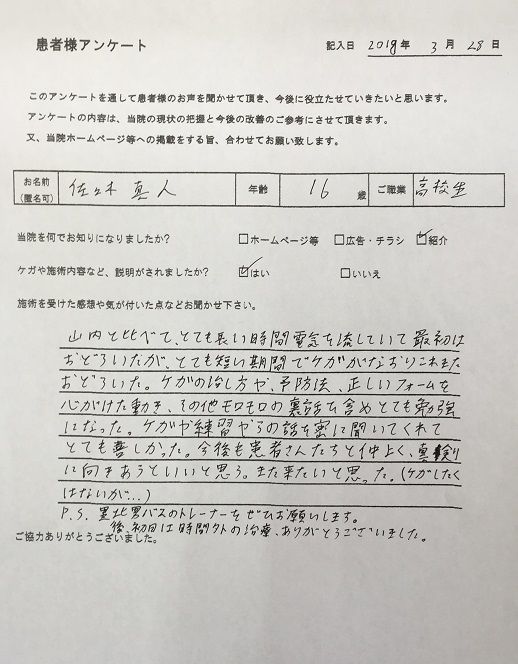 患者様アンケート
記入日 2018年 3月 28日
このアンケートを通して患者様のお声を聞かせて頂き、今後に役立たせていきたいと思います。
アンケートの内容は、当院の現状の把握と今後の改善のご参考にさせて頂きます。
又、当院ホームページ等への掲載をする旨、合わせてお願い致します。
お名前(匿名可) 佐々木 真人 年齢 16 歳 ご職業 高校生
当院を何でお知りになりましたか? □ホームページ等 □広告・チラシ ☑紹介
ケガや施術内容など、説明がされましたか? ☑はい □いいえ
施術を受けた感想や気が付いた点などお聞かせ下さい。
山内と比べて、とても長い時間電気を流していて最初は
おどろいたが、とても短い期間でケガがなおりこれまた
おどろいた。ケガの治し方や、予防法、正しいフォームを
心がけた動き、その他モロモロの裏話も含めとても勉強
になった。ケガや練習やらの話を密に聞いてくれて
とても喜しかった。今後も患者さんたちと仲よく、真剣
に向きあうといいと思う。また来たいと思った。(ケガしたく
はないが…)
P.S. 墨北男バスのトレーナーをぜひお願いします。
後、初回は時間外の治療、ありがとうございました。
ご協力ありがとうございました。